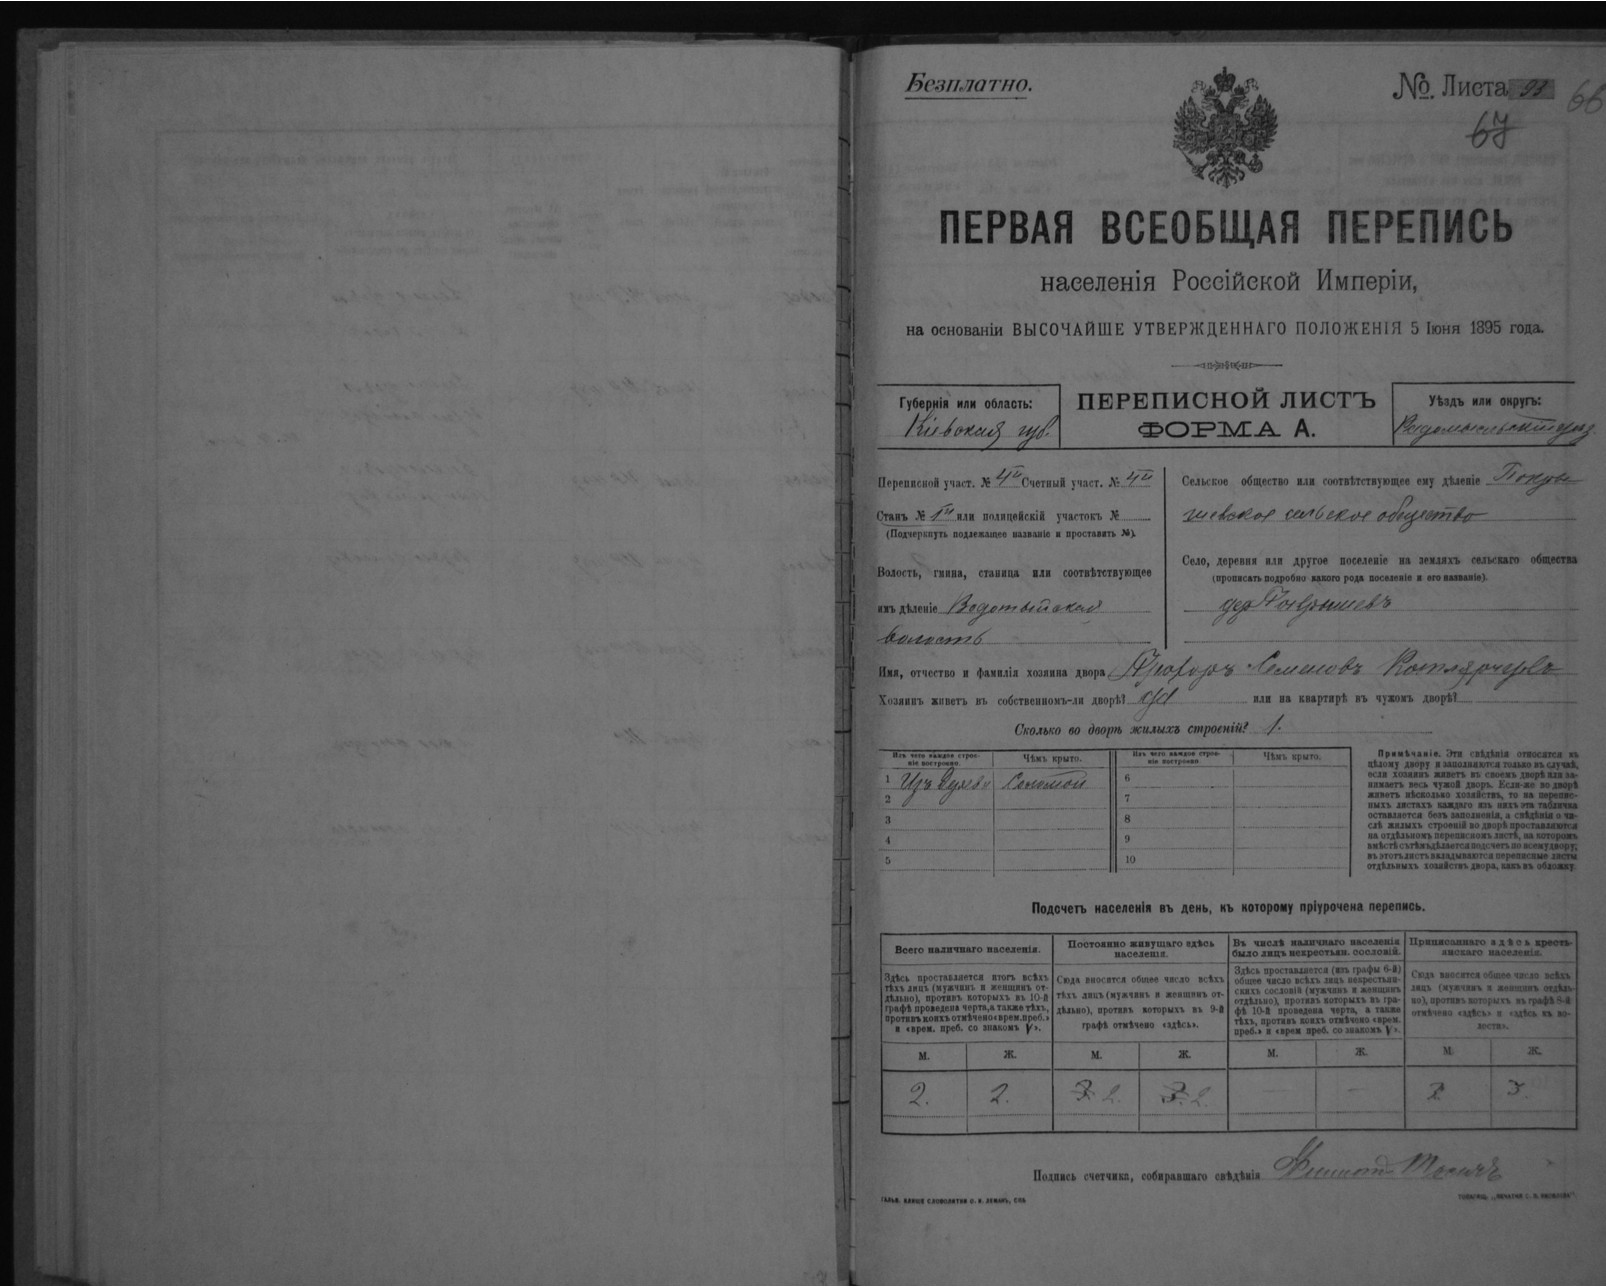 Безплатно.
№ Листа 93
66
67
ПЕРВАЯ ВСЕОБЩАЯ ПЕРЕПИСЬ
населенія Россійской Имперіи,
на основаніи ВЫСОЧАЙШЕ УТВЕРЖДЕННАГО ПОЛОЖЕНІЯ 5 Іюня 1895 года.
Губернія или область:
Кіевская губ.
ПЕРЕПИСНОЙ ЛИСТЪ
ФОРМА А.
Уѣздъ или округъ:
Радомысльскій уѣзд
Переписной участ. № 4й Счетный участ. № 4й
Станъ № 1й или полицейскій участокъ №
(Подчеркнуть подлежащее названіе и проставить №).
Волость, гмина, станица или соотвѣтствующее
имъ дѣленіе Водотыйская
волость
Сельское общество или соотвѣтствующее ему дѣленіе
шевское сельское общество
Село, деревня или другое поселеніе на земляхъ сельскаго общества
(прописать подробно какого рода поселеніе и его названіе).
дер.
Имя, отчество и фамилія хозяина двора Прохоръ Семеновъ
Хозяинъ живетъ въ собственномъ-ли дворѣ? да или на квартирѣ въ чужомъ дворѣ?
Сколько во дворѣ жилыхъ строеній? 1.
Изъ чего каждое строеніе построено.
Чѣмъ крыто.
Изъ чего каждое строеніе построено.
Чѣмъ крыто.
1 Изъ дерева Соломой
2
3
4
5
6
7
8
9
10
Примѣчаніе. Эти свѣдѣнія относятся къ
цѣлому двору и заполняются только въ случаѣ,
если хозяинъ живетъ въ своемъ дворѣ или за-
нимаетъ весь чужой дворъ. Если-же во дворѣ
живетъ нѣсколько хозяйствъ, то на перепис-
ныхъ листахъ каждаго изъ нихъ эта табличка
оставляется безъ заполненія, а свѣдѣнія о чи-
слѣ жилыхъ строеній во дворѣ проставляются
на отдѣльномъ переписномъ листѣ, на которомъ
вмѣстѣ съ тѣмъ дѣлается подсчетъ по всему двору;
въ этотъ листъ вкладываются переписные листы
отдѣльныхъ хозяйствъ двора, какъ въ обложку.
Подсчетъ населенія въ день, къ которому пріурочена перепись.
Всего наличнаго населенія.
Здѣсь проставляется итогъ всѣхъ
тѣхъ лицъ (мужчинъ и женщинъ от-
дѣльно), противъ которыхъ въ 10-й
графѣ проведена черта, а также тѣхъ,
противъ коихъ отмѣчено «врем. преб.»
и «врем. преб. со знакомъ V».
Постоянно живущаго здѣсь
населенія.
Сюда вносится общее число всѣхъ
тѣхъ лицъ (мужчинъ и женщинъ от-
дѣльно), противъ которыхъ въ 9-й
графѣ отмѣчено «здѣсь».
Въ числѣ наличнаго населенія
было лицъ некрестьян. сословій.
Здѣсь проставляется (изъ графы 6-й)
общее число всѣхъ лицъ некрестьян-
скихъ сословій (мужчинъ и женщинъ
отдѣльно), противъ которыхъ въ гра-
фѣ 10-й проведена черта, а также
тѣхъ, противъ коихъ отмѣчено «врем.
преб.» и «врем преб. со знакомъ V».
Приписаннаго здѣсь кресть-
янскаго населенія.
Сюда вносится общее число всѣхъ
лицъ (мужчинъ и женщинъ отдѣль-
но), противъ которыхъ въ графѣ 8-й
отмѣчено «здѣсь» и «здѣсь въ во-
лости».
М. Ж. М. Ж. М. Ж. М. Ж.
2. 2. 3. 2. 3. 2. — — 3.
Подпись счетчика, собиравшаго свѣдѣнія
ГАЛЬВ. КЛИШЕ СЛОВОЛИТНИ О. И. ЛЕМАНЪ, СПБ.